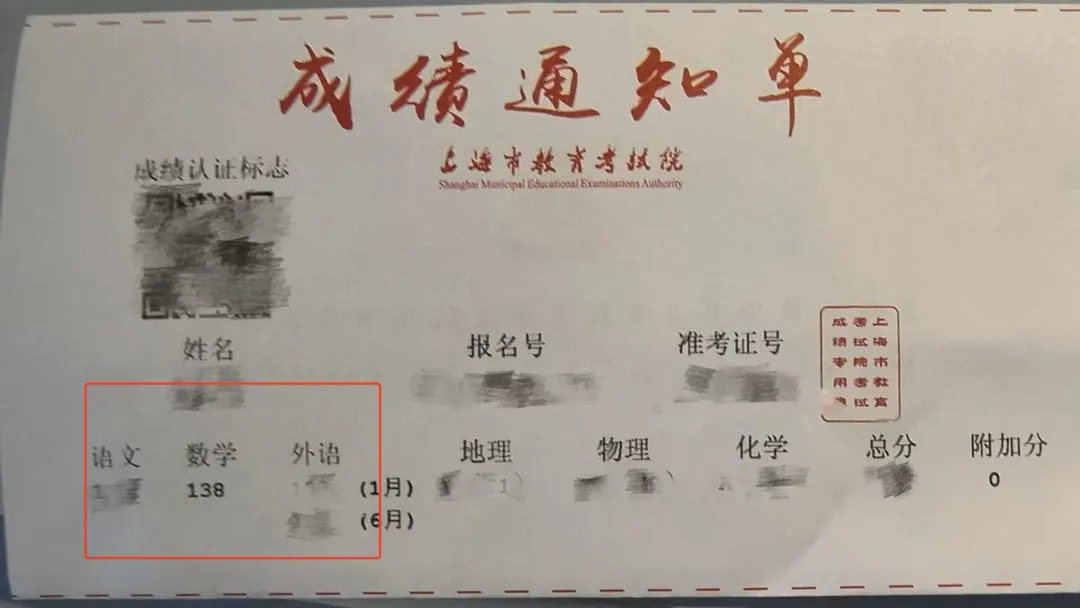 成绩通知单
上海市教育考试院
Shanghai Municipal Educational Examinations Authority
成绩认证标志
姓名 报名号 准考证号
上海市教育
考试院考试
成绩专用章
语文 数学 外语 地理 物理 化学 总分 附加分
138 (1月) 0
(6月)